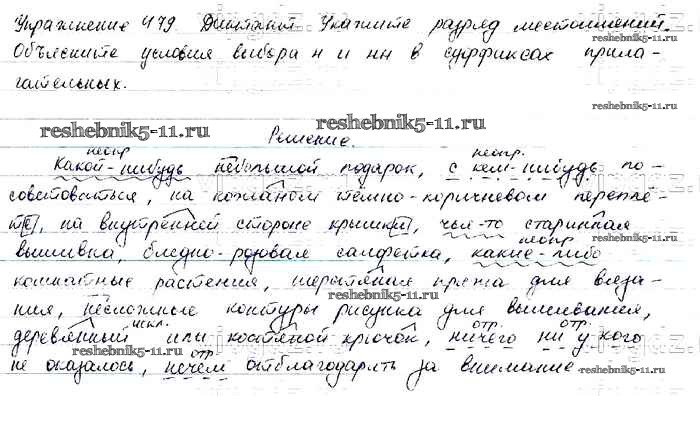 Упражнение 479. Диктант. Укажите разряд местоимений.
Объясните условия выбора н и нн в суффиксах прила-
reshebnik5-11.ru
гательных.
reshebnik5-11.ru
reshebnik5-11.ru
Решение.
неопр. неопр.
Какой-нибудь небольшой подарок, с кем-нибудь по-
советоваться, на кожаном темно-коричневом перепле-
те, на внутренней стороне крышки, чья-то старинная
неопр.
вышивка, бледно-розовая салфетка, какие-либо
комнатные растения, шерстяная пряжа для вяза-
reshebnik5-11.ru
ния, несложные контуры рисунка для вышивания,
искл. отр. отр.
деревянный или костяной крючок, ничего ни у кого
reshebnik5-11.ru
отр.
не оказалось, нечем отблагодарить за внимание.
reshebnik5-11.ru